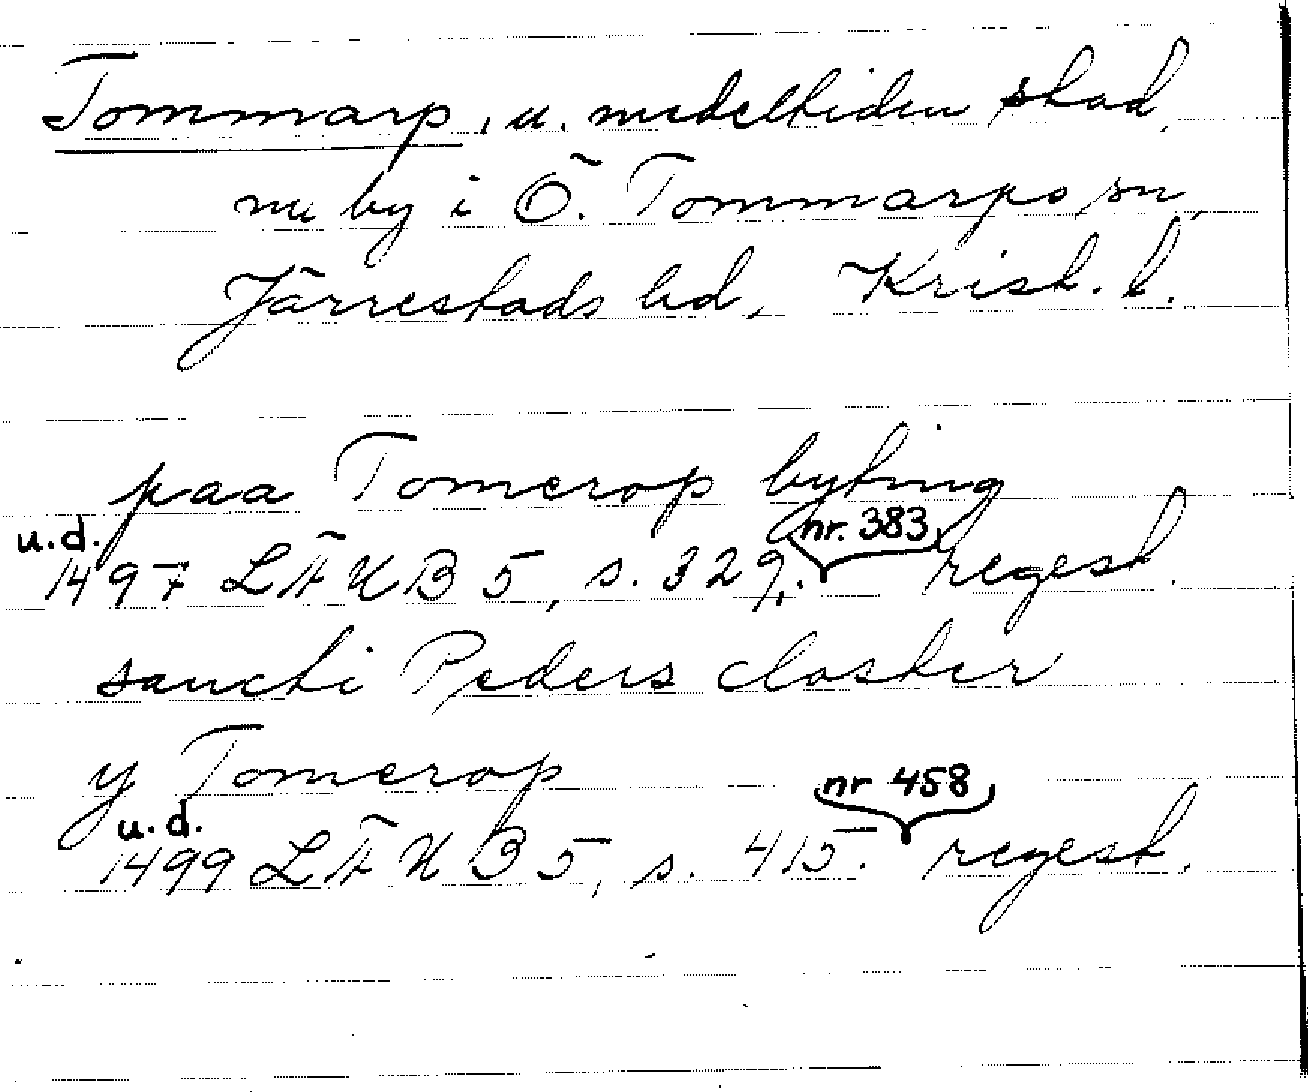 Tommarp, u. medeltiden stad,
nu by i Ö. Tommarps sn,
Järrestads hd, Krist. l.
paa Tomerop byting
u.d. nr. 383
1497 LÄUB 5, s. 329. regest.
sancti Peders closter
y Tomerop
u.d. nr 458
1499 LÄUB 5, s. 415. regest.